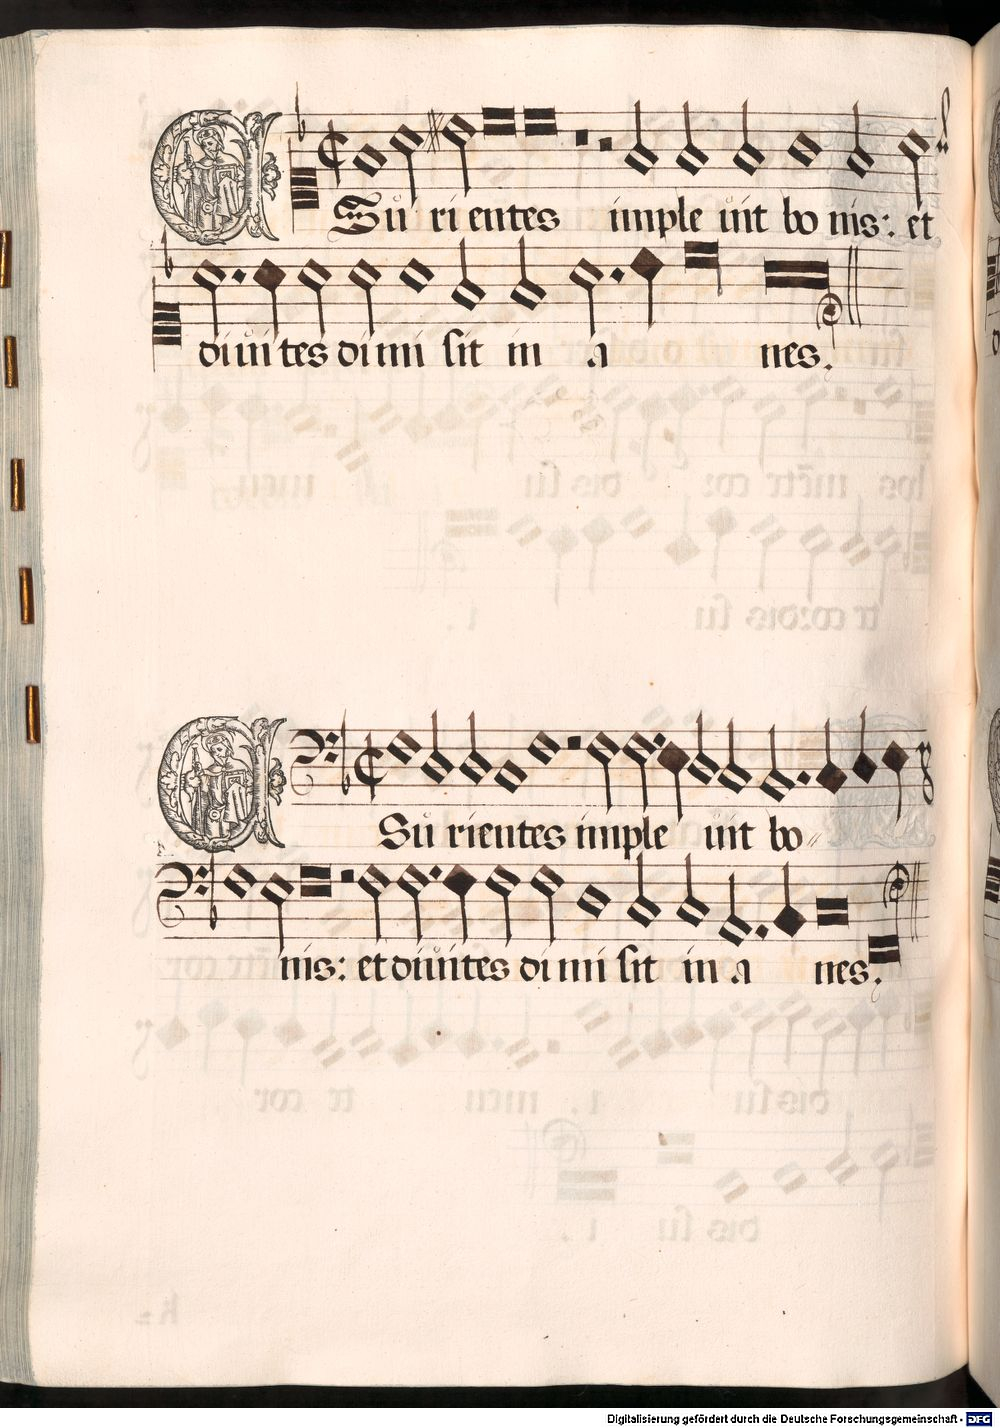 Esůrientes impleůit bonis: et
diůites dimisit ina nes.
Esůrientes imple ůit bo〃
nis: et diůites dimisit in a nes.
Digitalisierung gefördert durch die Deutsche Forschungsgemeinschaft - DFG